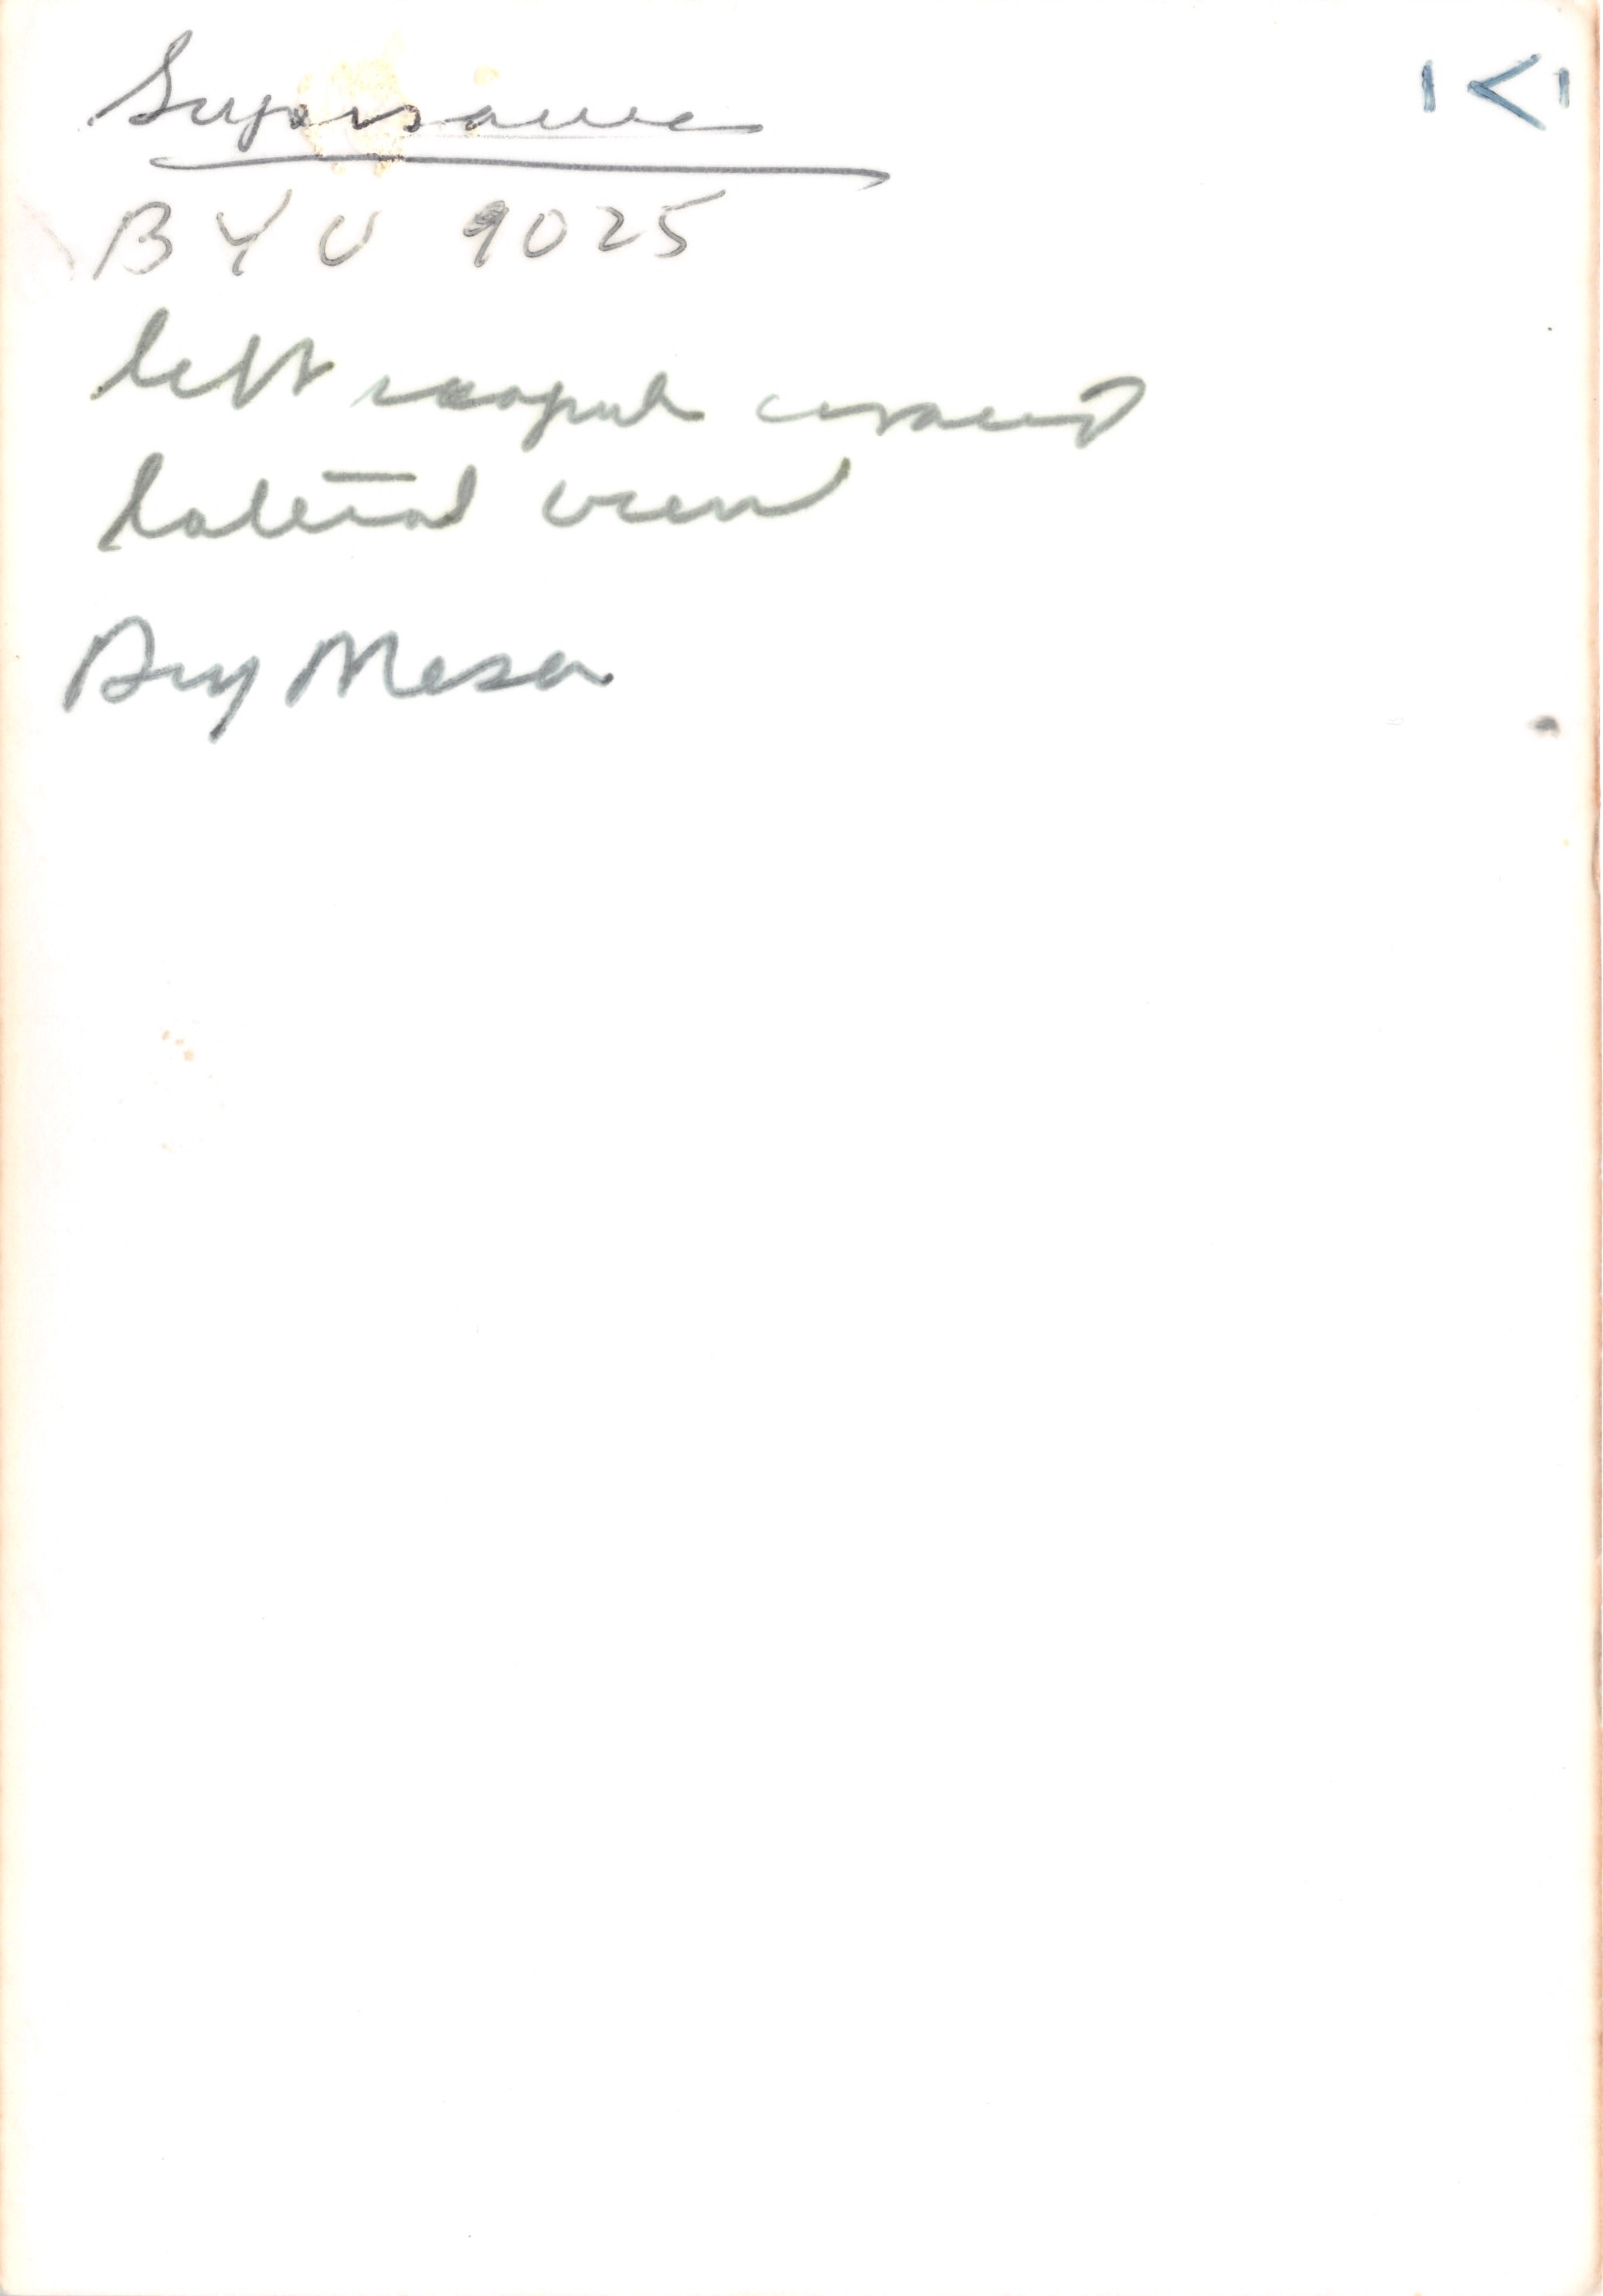 Supersaurus
BYU 9025
left scapula coracoid
lateral view
Dry Mesa